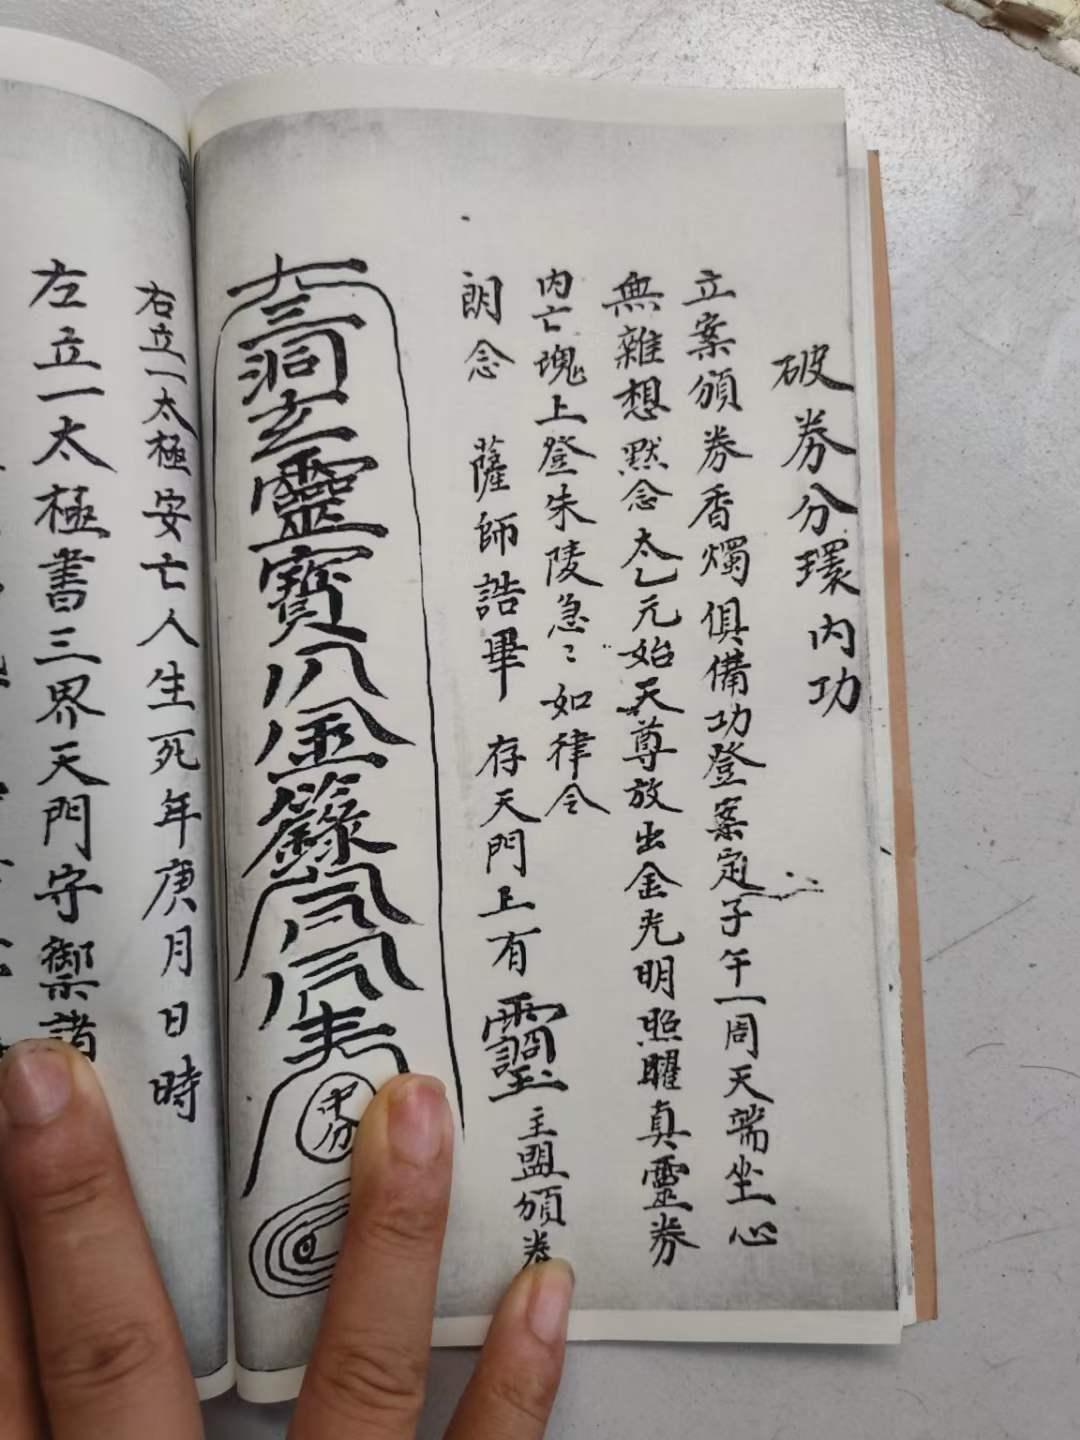 破券分環內功
立案頒券香燭俱備功登案定子午一周天端坐心
無雜想默念太乙元始天尊放出金光明照曜真靈券
內亡魂上登朱陵急〻如律令
朗念 薩師誥畢 存天門上有 主盟頒券
三洞玄靈寶 金籙
中分
右立一太極安亡人生死年庚月日時
左立一太極書三界天門守禦諸